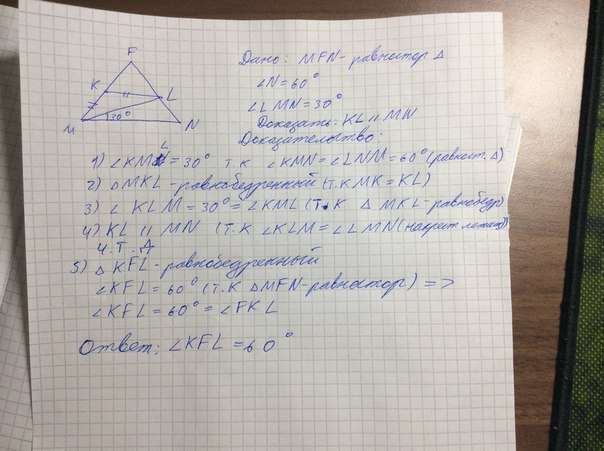 F
K
L
M
30°
N
Дано: MFN - равностор △
∠N = 60°
∠LMN = 30°
Доказать: KL || MN
Доказательство:
1) ∠KML = 30° т.к ∠KMN = ∠LNM = 60° (равност. △)
2) △MKL - равнобедренный (т.к MK = KL)
3) ∠KLM = 30° = ∠KML (т.к △ MKL - равнобедр)
4) KL || MN (т.к ∠KLM = ∠LMN (накрест лежащ))
Ч.Т.Д
5) △ KFL - равнобедренный
∠KFL = 60° (т.к △MFN - равностор) =>
∠KFL = 60° = ∠FKL
Ответ: ∠KFL = 60°